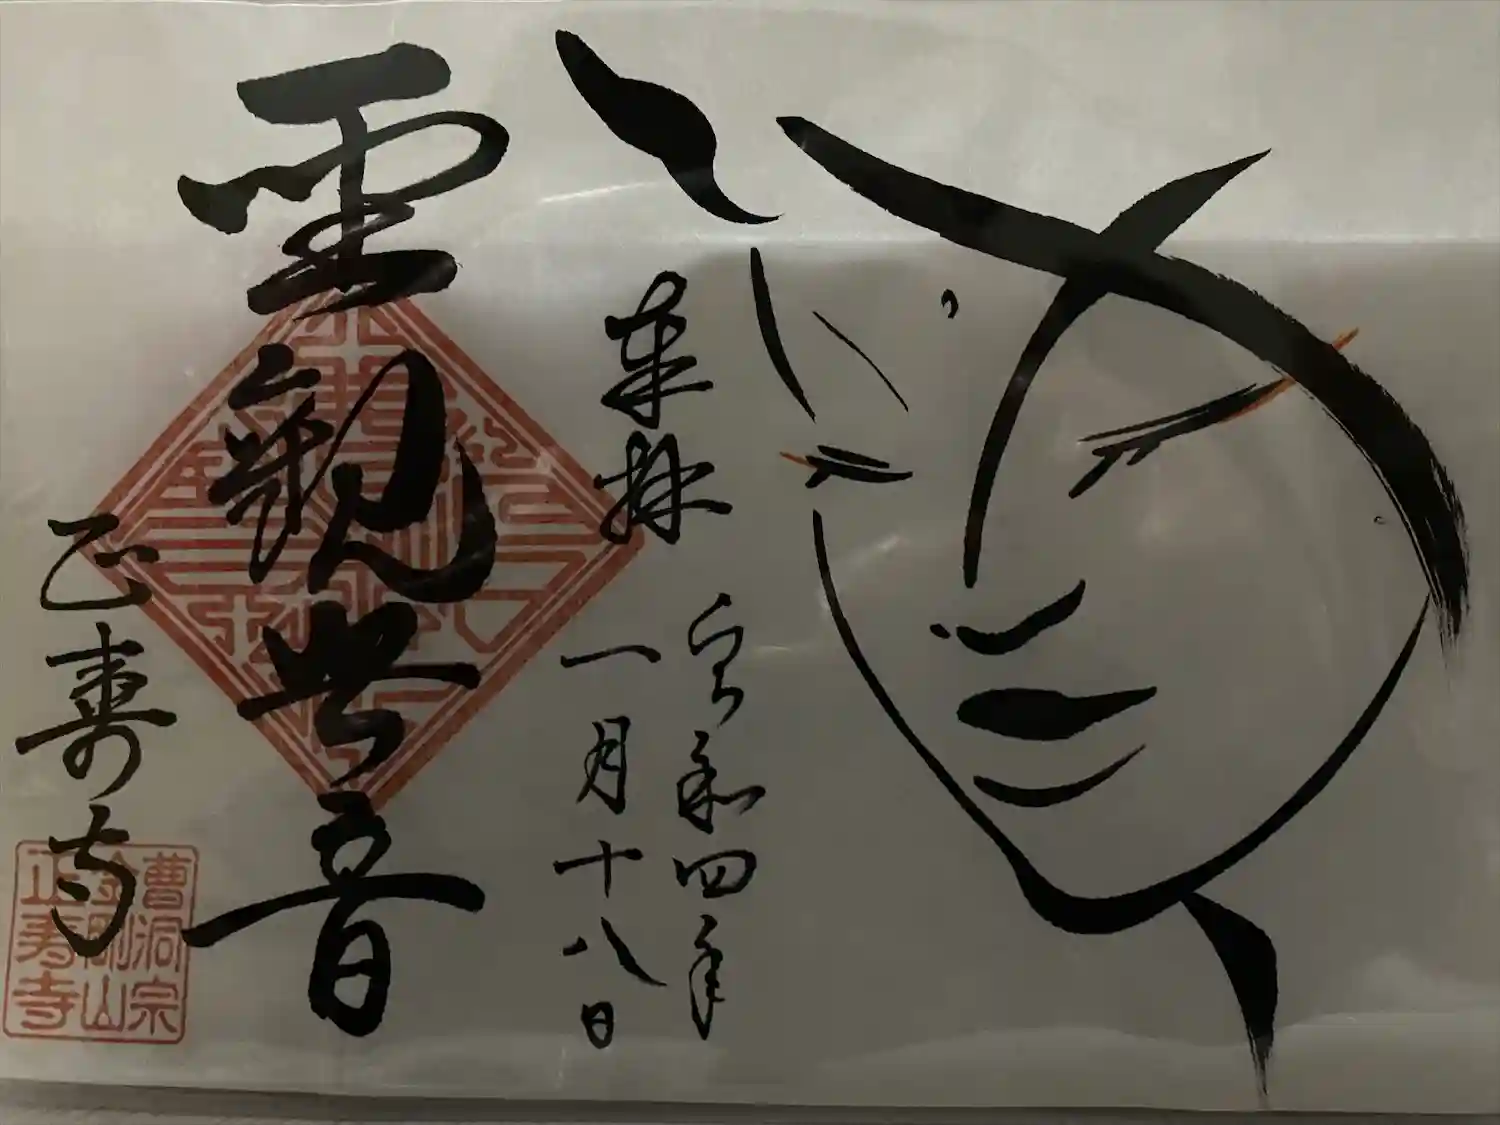 奉拝
令和四年
一月十八日
聖観世音
正寿寺
曹洞宗
金剛山
正寿寺